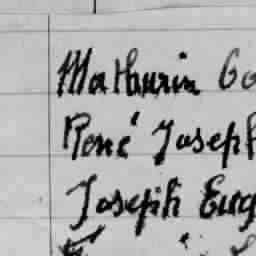 Mathurin Go
René Joseph
Joseph Eug